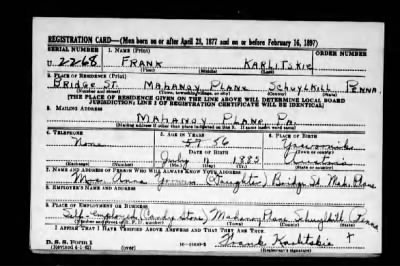 REGISTRATION CARD—(Men born on or after April 28, 1877 and on or before February 16, 1897)
SERIAL NUMBER 1. NAME (Print) ORDER NUMBER
U. 2268 FRANK KARLITSKIE
(First) (Middle) (Last)
2. PLACE OF RESIDENCE (Print)
BRIDGE ST. MAHANOY PLANE SCHUYLKILL PENNA.
(Number and street) (Town, township, village, or city) (County) (State)
[THE PLACE OF RESIDENCE GIVEN ON THE LINE ABOVE WILL DETERMINE LOCAL BOARD
JURISDICTION; LINE 2 OF REGISTRATION CERTIFICATE WILL BE IDENTICAL]
3. MAILING ADDRESS
MAHANOY PLANE, PA.
[Mailing address if other than place indicated on line 2. If same insert word same]
4. TELEPHONE 5. AGE IN YEARS 6. PLACE OF BIRTH
None 56
DATE OF BIRTH (Town or county)
July 11 1885 Austria
(Exchange) (Number) (Mo.) (Day) (Yr.) (State or country)
7. NAME AND ADDRESS OF PERSON WHO WILL ALWAYS KNOW YOUR ADDRESS
Anna (Daughter) Bridge St. Mah. Plane
8. EMPLOYER'S NAME AND ADDRESS
9. PLACE OF EMPLOYMENT OR BUSINESS
Self-employed (Candy Store) Mahanoy Plane Schuylkill Penna
(Number and street or R. F. D. number) (Town) (County) (State)
I AFFIRM THAT I HAVE VERIFIED ABOVE ANSWERS AND THAT THEY ARE TRUE.
D. S. S. Form 1
(Revised 4-1-42) Frank Karlitskie
(Registrant's signature)